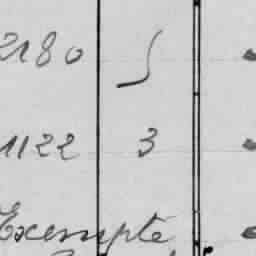 2180 5
1122 3
Exempte